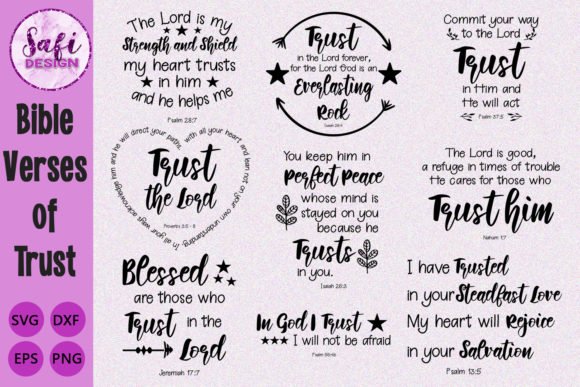 Safi
DESIGN
Bible
Verses
of
Trust
SVG
DXF
EPS
PNG
The Lord is my
Strength and Shield
my heart trusts
in him
and he helps me
Psalm 28:7
Trust
in the Lord forever,
for the Lord God is an
Everlasting
Rock
Isaiah 26:4
Commit your way
to the Lord
Trust
in Him and
He will act
Psalm 37:5
Trust
the Lord
with all your heart and lean not on your own understanding, in all your ways acknowledge him and he will direct your paths.
Proverbs 3:5 - 6
You keep him in
Perfect Peace
whose mind is
stayed on you
because he
Trusts
in you.
Isaiah 26:3
The Lord is good,
a refuge in times of trouble
He cares for those who
Trust him
Nahum 1:7
Blessed
are those who
Trust in the
Lord
Jeremiah 17:7
In God I Trust
I will not be afraid
Psalm 56:4b
I have Trusted
in your Steadfast Love
My heart will Rejoice
in your Salvation
Psalm 13:5